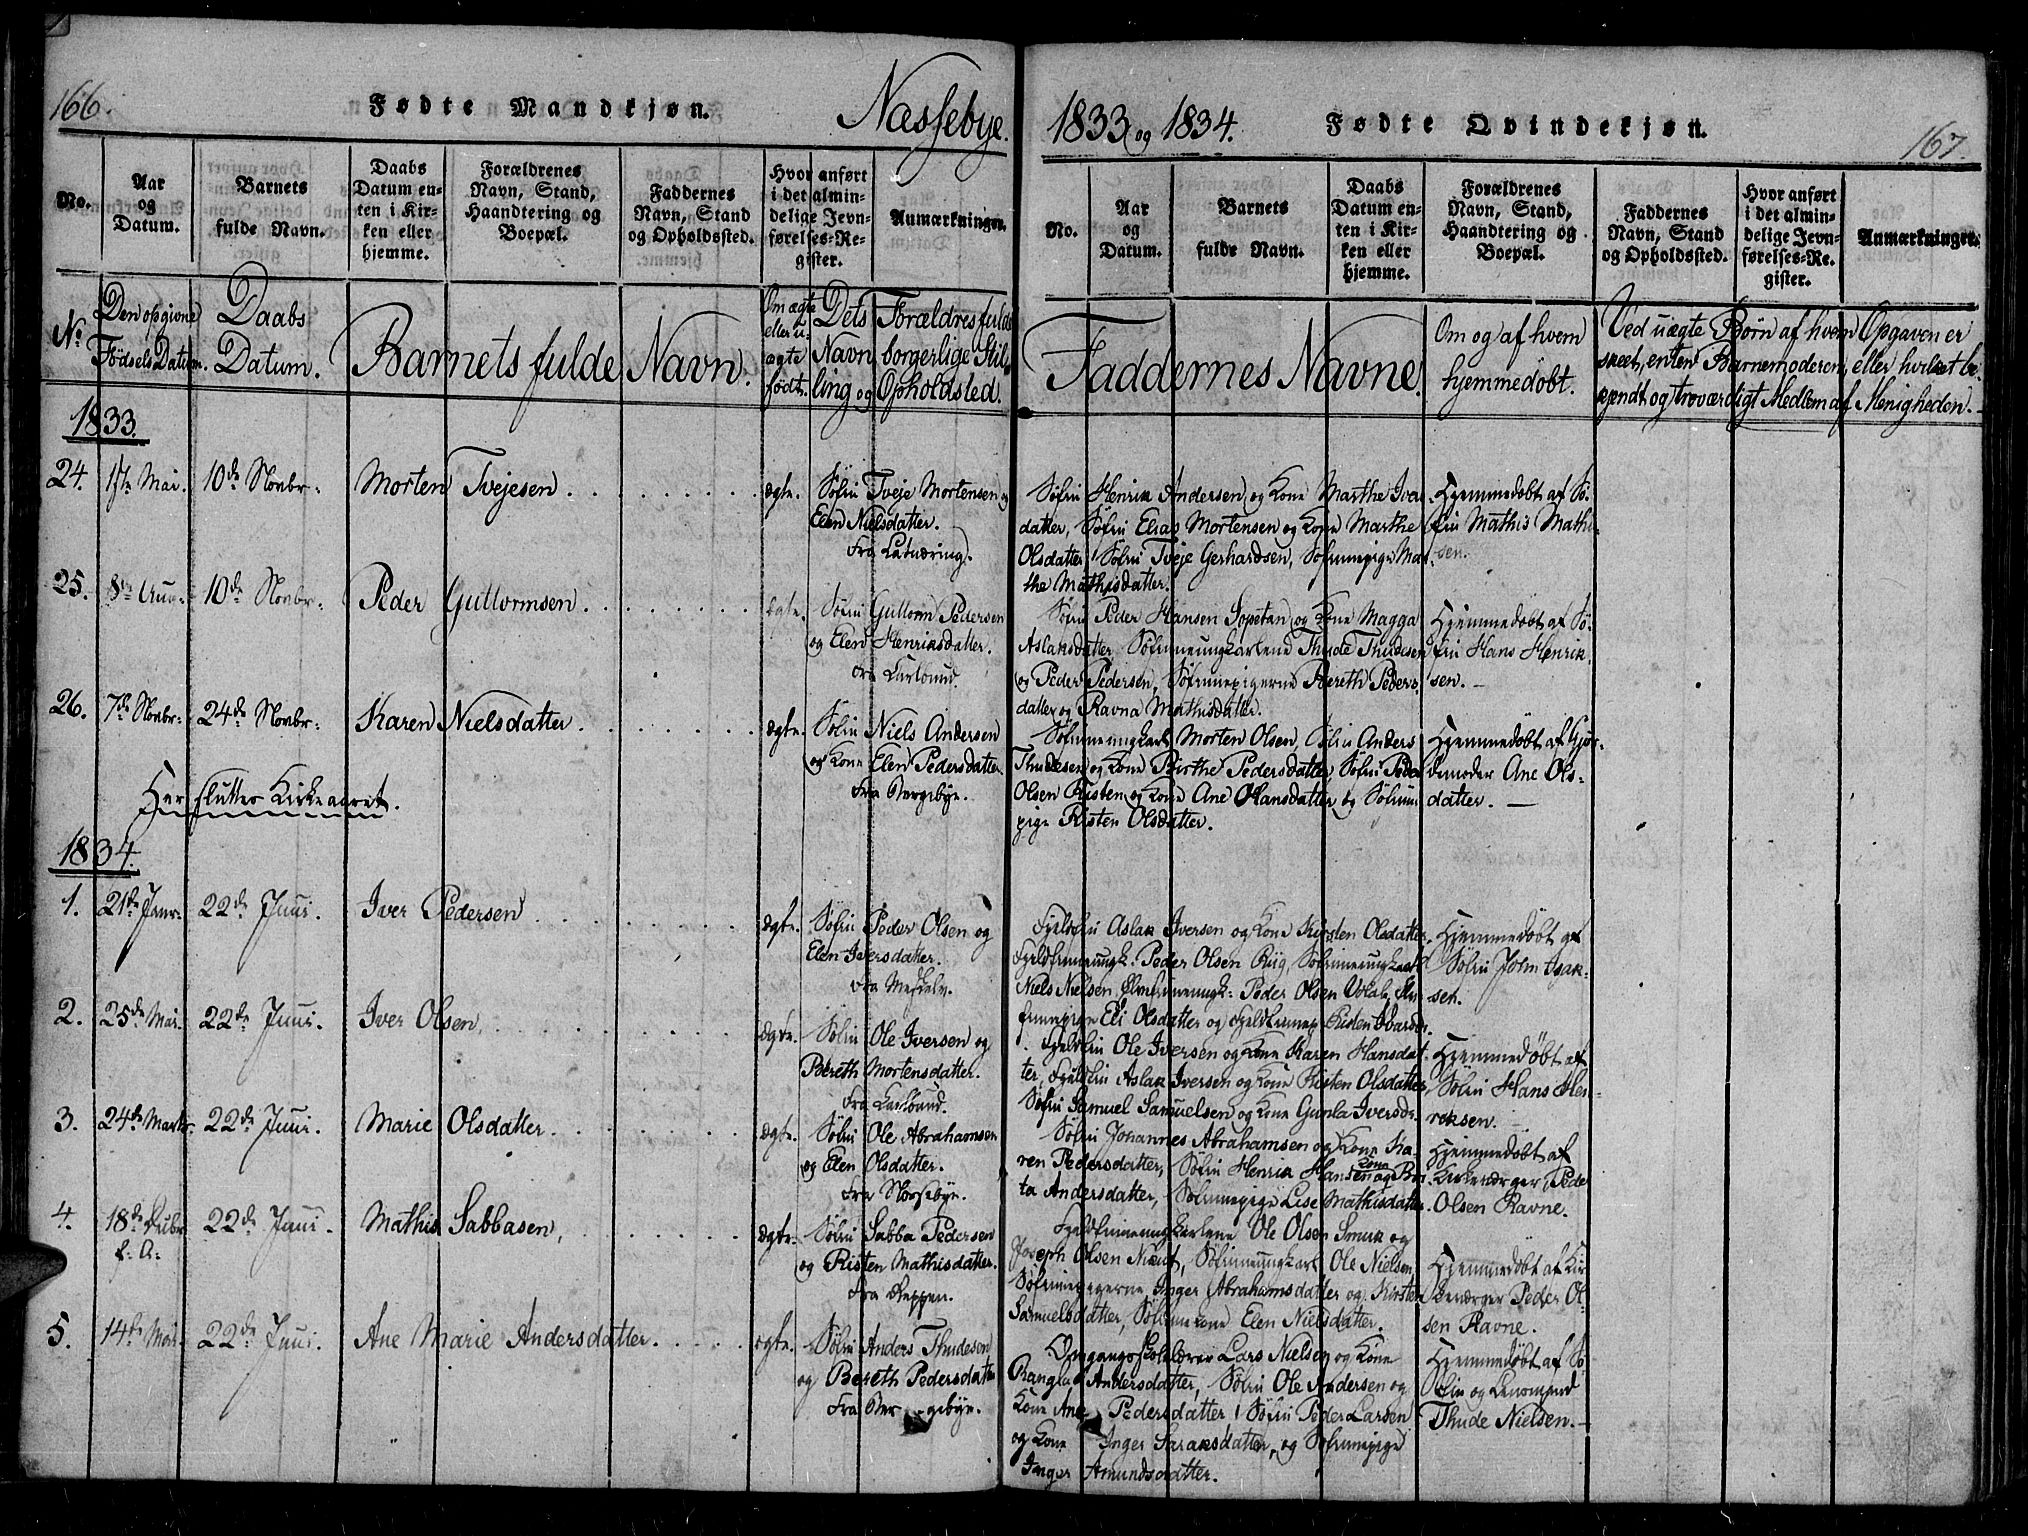 166.
Fødte Mandkjøn.
Næssebye.
No.
Aar
og
Datum.
Barnets
fulde Navn.
Daabs
Datum en-
ten i Kir-
ken eller
hjemme.
Forældrenes
Navn, Stand,
Haandtering og
Boepæl.
Faddernes
Navn, Stand
og Opholdssted.
Hvor anført
i det almin-
delige Jevn-
førelses-Re-
gister.
Anmærkninger.
No.
Den opgivne
Fødsels Datum.
Daabs
Datum.
Barnets fulde Navn.
Om ægte
eller u-
ægte
født.
Dets Forældres fulde
Navn borgerlige Stil-
ling og Opholdsted.
1833.
24. 17de Mai. 10de Novbr. Morten Tvejesen ægte. Søfin Tveje Mortensen og
Elen Nielsdatter.
Fra Latnæring.
25. 8de Aug. 10de Novbr. Peder Guttormsen ægte. Søfin Guttorm Pedersen
og Elen Henriksdatter.
fra Karlbund.
26. 7de Novbr. 24de Novbr. Karen Nielsdatter ægte. Søfin Niels Andersen
og Kone Elen Pedersdatter
fra Bergebye.
Her slutter Kirkeaaret.
1834.
1. 21de Janr. 22de Juni. Iver Pedersen ægte. Søfin Peder Olsen og
Elen Iversdatter.
fra Meskelv.
2. 25de Mai. 22de Juni. Iver Olsen ægte. Søfin Ole Iversen og
Bereth Mortensdatter.
Fra Karlbund.
3. 24de Marts. 22de Juni. Marie Olsdatter ægte. Søfin Ole Abrahamsen
og Elen Olsdatter.
fra Næssebye.
4. 18de 22de Juni. Mathis Sabbasen, ægte. Søfin Sabba Pedersen
f. A.
og Risten Mathisdatter.
fra Reppen.
5. 14de Mai. 22de Juni. Ane Marie Andersdatter ægte. Søfin Anders Thudesen
og Bereth Pedersdatter
Fra Bergebye.
1833 og 1834.
Fødte Qvindekjøn.
167.
No.
Aar
og
Datum.
Barnets
fulde Navn.
Daabs
Datum en-
ten i Kir-
ken eller
hjemme.
Forældrenes
Navn, Stand,
Haandtering og
Boepæl.
Faddernes
Navn, Stand
og Opholdssted.
Hvor anført
i det almin-
delige Jevn-
førelses-Re-
gister.
Anmærkninger.
Faddernes Navne
Om og af hvem
hjemmedøbt.
Ved uægte Børn af hvem Opgaven er
skeet, enten Barnemoderen, eller hvilket be-
kjendt og troværdigt Medlem af Menigheden.
Søfin Henrik Andersen og Kone Marthe Ivar-
datter, Søfin Elias Mortensen og Kone Marthe
Olsdatter, Søfin Tveje Gerhardsen, Søfinnepige Mar-
the Mathisdatter.
Hjemmedøbt af Sø-
fin Mathis Mathi-
sen.
Søfin Peder Hansen Sopetan og Kone Magga
Aslaksdatter, Søfinneungkarlene Thude Thudesen
og Peder Pedersen, Søfinnepigerne Bereth Peders-
datter og Ravna Mathisdatter.
Hjemmedøbt af Sø-
fin Hans Henrik-
sen.
Søfinneungkarl Morten Olsen, Søfin Anders
Thudesen og Kone Birthe Pedersdatter, Søfin Peder
Olsen Risten og Kone Ane Hansdatter og Søfinne
pige Risten Olsdatter.
Hjemmedøbt af Gjor-
demoder Ane Ols-
datter.
Fjeldfin Aslak Iversen og Kone Kirsten Olsdatter,
Fjeldfinneungk: Peder Olsen Riig, Søfinneungkarl
Niels Nielsen, Elvefinneungk: Peder Olsen
finnepige Eli Olsdatter og Fjeldfinnep Risten
Hjemmedøbt af
Søfin John Isak-
sen.
Fjeldfin Ole Iversen og Kone Karen Hansdat-
ter, Fjeldfin Aslak Iversen og Kone Risten Olsdatter,
Søfin Samuel Samuelsen og Kone Gunla Iversdr.
Hjemmedøbt af
Søfin Hans Hen-
riksen.
Søfin Johannes Abrahamsen og Kone Ka-
ren Pedersdatter, Søfin Henrik Hansen og Kone Bri-
ta Andersdatter, Søfinnepige Lise Mathisdatter
Hjemmedøbt af
Kirkeværger Peder
Olsen Ravne.
Fjeldfinneungkarlene Ole Olsen Smuk og
Joseph Olsen Niæit, Søfinneungkarl Ole Nielsen,
Søfinnepigerne Inger Abrahamsdatter og Kirsten
Samuelsdatter, Søfinnekone Elen Nielsdatter.
Hjemmedøbt af Kir-
keværger Peder Ol-
sen Ravne.
Omgangsskolelærer Lars Nielsen og Kone
Rangla Andersdatter, Søfin Ole Andersen og
Kone Ane Pedersdatter, Søfin Peder Larsen
og Kone Inger Saraksdatter, og Søfinnepige
Inger Amundsdatter.
Hjemmedøbt af Sø-
fin og Lensmand
Thude Nielsen.